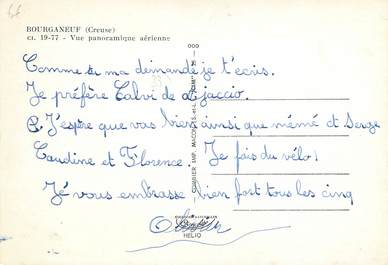 BOURGANEUF (Creuse)
CI. 19-77 - Vue panoramique aérienne
Comme tu ma demandé je t'ecris.
Je préfère Calvi de ajaccio.
J'espère que vas bien ainsi que mémé et Serge
Caudine et Florence Je fais du vélo!
Je vous embrasse bien fort tous les cinq
HELIO